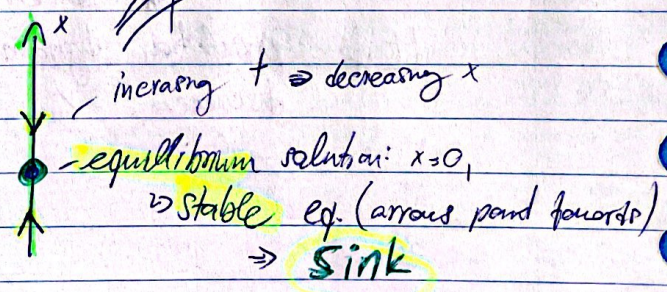 x
incrasng t ⇒ decreasing x
equillibrium solution: x=0,
↳ stable eq. (arrows point towards)
⇒ sink